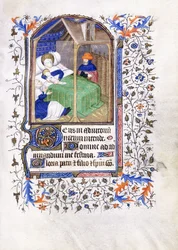 Deus in adiutorium
meum intende.
Domine ad ad
iuuandum me festina.
Gloria patri et filio et